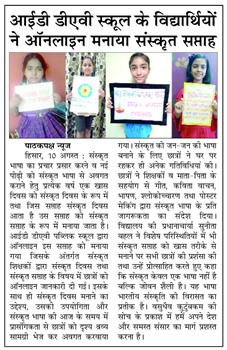 आईडी डीएवी स्कूल के विद्यार्थियों
ने ऑनलाइन मनाया संस्कृत सप्ताह
पाठकपक्ष न्यूज
हिसार, 10 अगस्त : संस्कृत
भाषा का प्रचार प्रसार करने व नई
पीढ़ी को संस्कृत भाषा से अवगत
कराने हेतु प्रत्येक वर्ष एक खास
दिवस को संस्कृत दिवस के रूप में
तथा जिस सप्ताह संस्कृत दिवस
आता है उस सप्ताह को संस्कृत
सप्ताह के रूप में मनाया जाता है।
आईडी डीएवी पब्लिक स्कूल द्वारा
ऑनलाइन इस सप्ताह को मनाया
गया जिसके अंतर्गत संस्कृत
शिक्षकों द्वारा संस्कृत दिवस तथा
संस्कृत सप्ताह के विषय में छात्रों को
ऑनलाइन जानकारी दी गई। इसके
साथ ही संस्कृत दिवस मनाने का
उद्देश्य, उसकी उपयोगिता और
संस्कृत भाषा को आज के समय में
प्रासंगिकता से छात्रों को दृश्य श्रव्य
सामग्री भेज कर अवगत करवाया
गया। संस्कृत को जन-जन की भाषा
बनाने के लिए छात्रों ने घर पर
रहकर ही अनेक गतिविधियां की।
छात्रों ने शिक्षकों व माता-पिता के
सहयोग से गीत, कविता वाचन,
भाषण, श्लोकोच्चारण तथा पोस्टर
मेकिंग द्वारा संस्कृत भाषा के प्रति
जागरूकता का संदेश दिया।
विद्यालय की प्रधानाचार्या सुनीता
बहल ने विशेष परिस्थितियों में भी
संस्कृत सप्ताह को खास तरीके से
मनाने पर सभी छात्रों की प्रशंसा की
तथा उन्हें प्रोत्साहित करते हुए कहा
कि संस्कृत केवल एक भाषा नहीं है
बल्कि जीवन शैली है। यह भाषा
भारतीय संस्कृति की विरासत का
प्रतीक है। वसुधैव कुटुंबकम की
सोच के प्रकाश में हमें अपने देश
और समस्त संसार का मार्ग प्रशस्त
करना है।